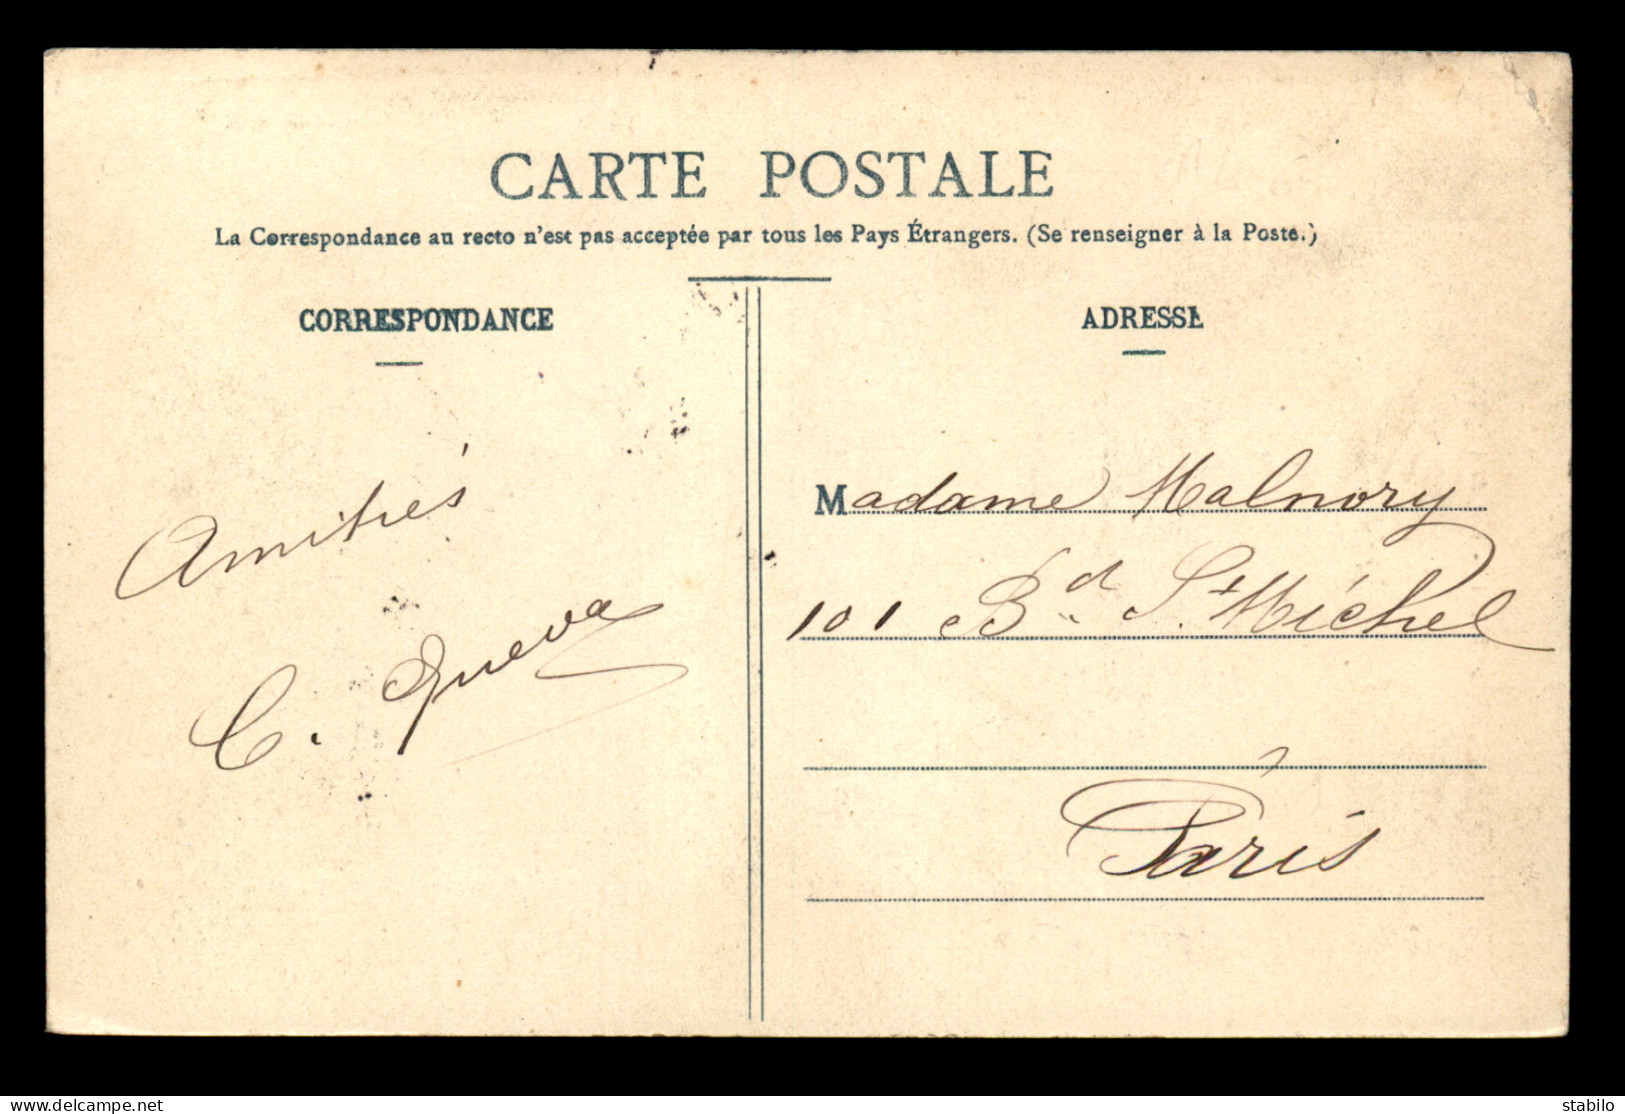 CARTE POSTALE
La Correspondance au recto n'est pas acceptée par tous les Pays Étrangers. (Se renseigner à la Poste.)
CORRESPONDANCE
Amitiés
C. Queva
ADRESSE
Madame Malnory
101 Bd. St. Michel
Paris
delcampe.net
stabilo